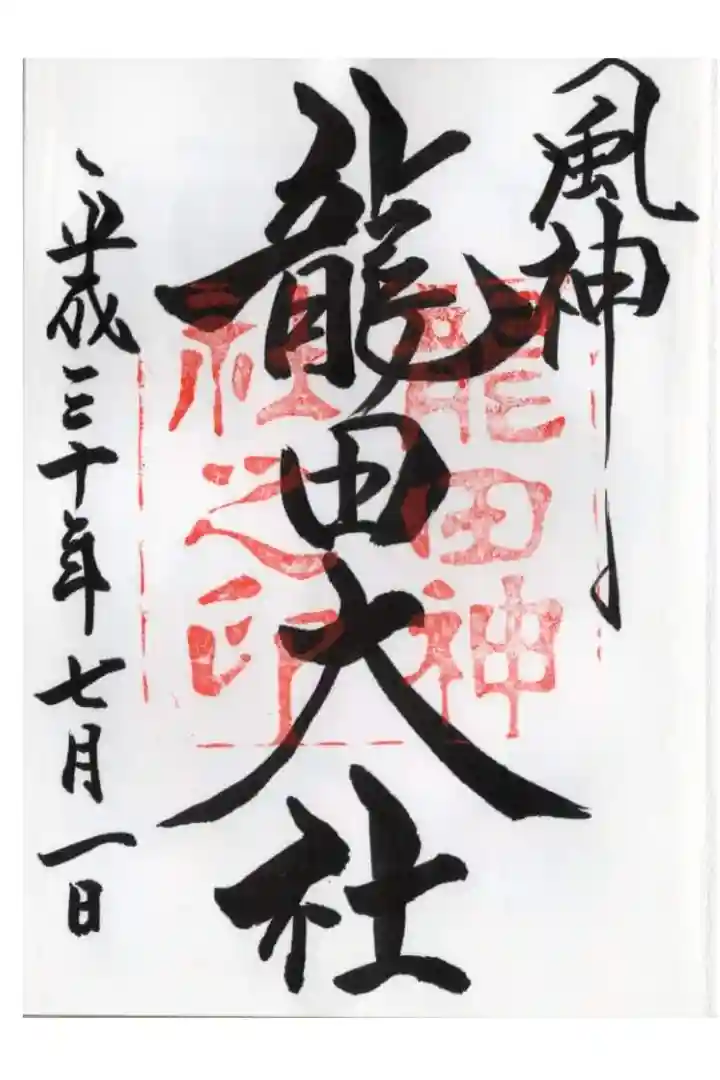 風神
龍田大社
平成三十年七月一日
龍田神
社之印